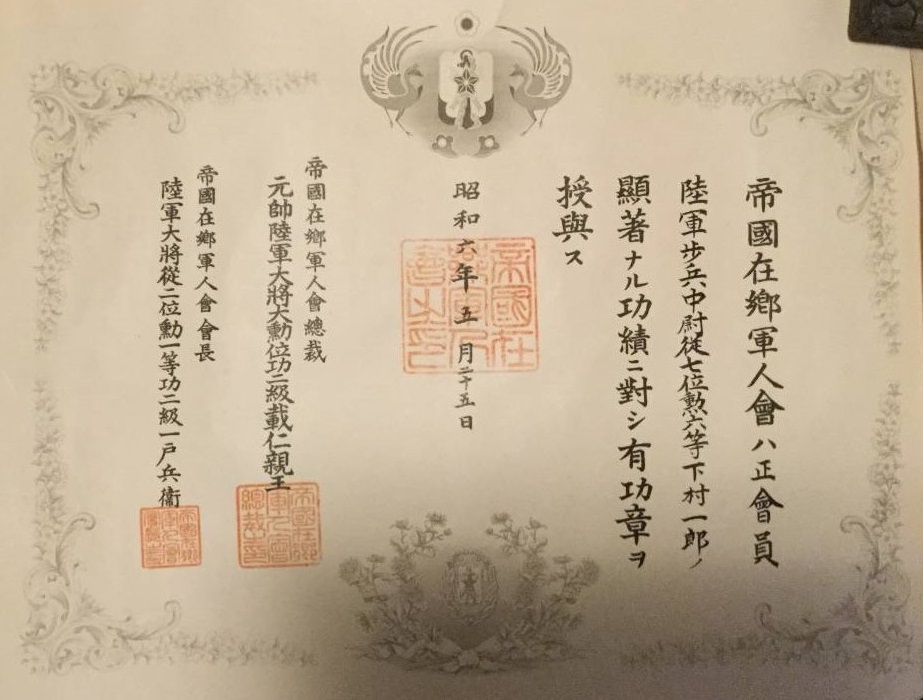 帝國在鄉軍人會ハ正會員
陸軍步兵中尉從七位勲六等下村一郎ノ
顯著ナル功績ニ對シ有功章ヲ
授與ス
昭和六年五月二十五日
帝國在鄉軍人會之印
帝國在鄉軍人會總裁
元帥陸軍大將大勲位功二級載仁親王
帝國在鄉軍人會會長
陸軍大將從二位勲一等功二級一戸兵衞